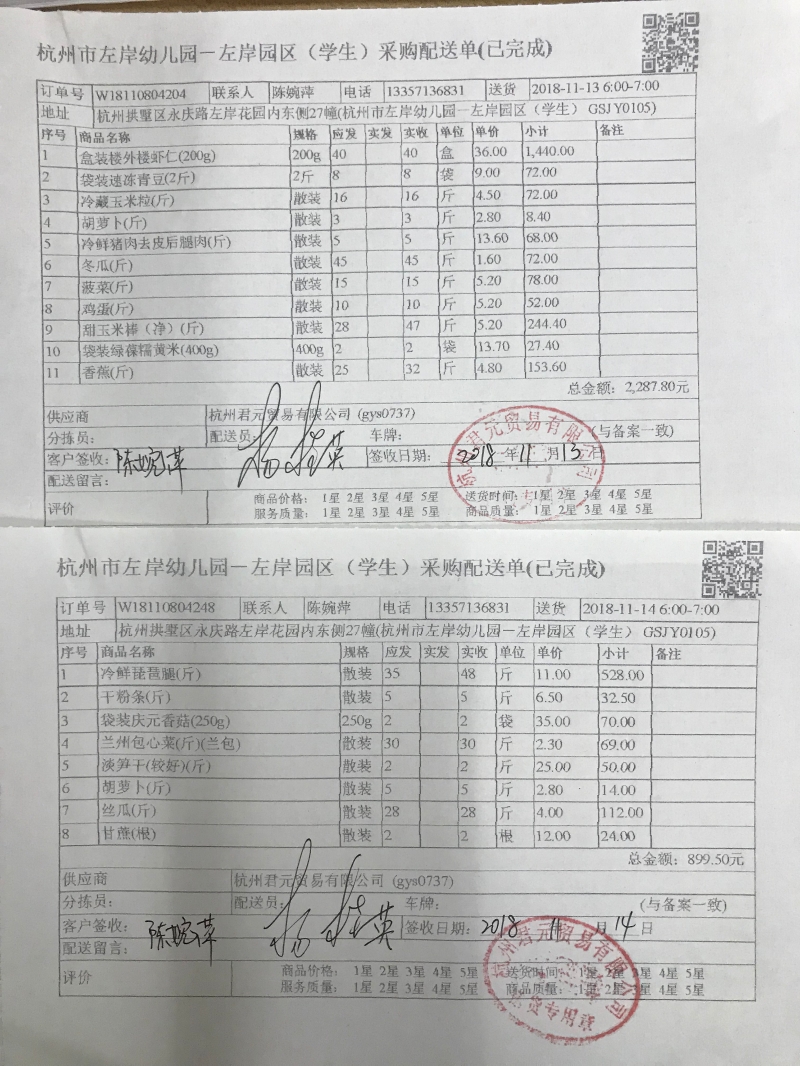 杭州市左岸幼儿园－左岸园区（学生）采购配送单(已完成)
订单号 W18110804204 联系人 陈婉萍 电话 13357136831 送货 2018-11-13 6:00-7:00
地址 杭州拱墅区永庆路左岸花园内东侧27幢(杭州市左岸幼儿园－左岸园区（学生）GSJY0105)
序号 商品名称 规格 应发 实发 实收 单位 单价 小计 备注
1 盒装楼外楼虾仁(200g) 200g 40 40 盒 36.00 1,440.00
2 袋装速冻青豆(2斤) 2斤 8 8 袋 9.00 72.00
3 冷藏玉米粒(斤) 散装 16 16 斤 4.50 72.00
4 胡萝卜(斤) 散装 3 3 斤 2.80 8.40
5 冷鲜猪肉去皮后腿肉(斤) 散装 5 5 斤 13.60 68.00
6 冬瓜(斤) 散装 45 45 斤 1.60 72.00
7 菠菜(斤) 散装 15 15 斤 5.20 78.00
8 鸡蛋(斤) 散装 10 10 斤 5.20 52.00
9 甜玉米棒（净）(斤) 散装 28 47 斤 5.20 244.40
10 袋装绿葆糯黄米(400g) 400g 2 2 袋 13.70 27.40
11 香蕉(斤) 散装 25 32 斤 4.80 153.60
总金额：2,287.80元
供应商 杭州君元贸易有限公司 (gys0737)
分拣员： 配送员：杨桂英 车牌： (与备案一致)
客户签收：陈婉萍 签收日期：2018年11月13日
配送留言：
评价 商品价格： 1星 2星 3星 4星 5星 送货时间： 1星 2星 3星 4星 5星
服务质量： 1星 2星 3星 4星 5星 商品质量： 1星 2星 3星 4星 5星
杭州君元贸易有限公司
杭州市左岸幼儿园－左岸园区（学生）采购配送单(已完成)
订单号 W18110804248 联系人 陈婉萍 电话 13357136831 送货 2018-11-14 6:00-7:00
地址 杭州拱墅区永庆路左岸花园内东侧27幢(杭州市左岸幼儿园－左岸园区（学生）GSJY0105)
序号 商品名称 规格 应发 实发 实收 单位 单价 小计 备注
1 冷鲜琵琶腿(斤) 散装 35 48 斤 11.00 528.00
2 干粉条(斤) 散装 5 5 斤 6.50 32.50
3 袋装庆元香菇(250g) 250g 2 2 袋 35.00 70.00
4 兰州包心菜(斤)(兰包) 散装 30 30 斤 2.30 69.00
5 淡笋干(较好)(斤) 散装 2 2 斤 25.00 50.00
6 胡萝卜(斤) 散装 5 5 斤 2.80 14.00
7 丝瓜(斤) 散装 28 28 斤 4.00 112.00
8 甘蔗(根) 散装 2 2 根 12.00 24.00
总金额：899.50元
供应商 杭州君元贸易有限公司 (gys0737)
分拣员： 配送员：杨桂英 车牌： (与备案一致)
客户签收：陈婉萍 签收日期：2018 11月14日
配送留言：
评价 商品价格： 1星 2星 3星 4星 5星 送货时间： 1星 2星 3星 4星 5星
服务质量： 1星 2星 3星 4星 5星 商品质量： 1星 2星 3星 4星 5星
杭州君元贸易有限公司
专用章